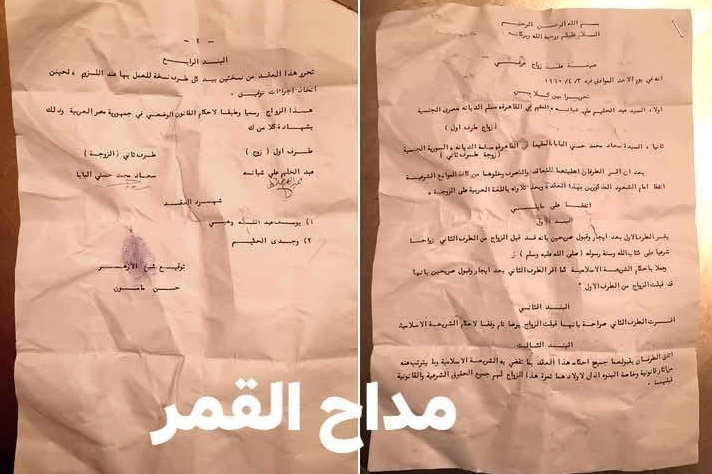 بسم الله الرحمن الرحيم
السلام عليكم ورحمة الله وبركاته
صيغة عقد زواج عرفي
انه في يوم الاحد الموافق فيه ٣/٤/١٩٦٠
تحرير بين كلا من
اولا، السيد عبد الحليم علي شبانه، المقيم في القاهرة مسلم الديانه مصرى الجنسية
(زواج طرف اول)
ثانيا، السيدة سعاد محمد حسني البابا المقيمة في القاهرة مسلمة الديانه، السورية الجنسية
(زوجة طرف ثاني)
بعد ان اقر الطرفان اهليتهما للتعاقد والتصرف وخلوهما من كافة الموانع الشرعية
اتفقا امام الشهود المذكورين بهذا العقد وبعد تلاوته باللغة العربية على الزوجية،
اتفقنا على مايلي
البند الاول
يقر الطرف الاول بعد ايجاب وقبول صريحين بانه قد قبل الزواج من الطرف الثاني زواجا
شرعيا على كتاب الله وسنة رسوله (صلى الله عليه وسلم)
وعملا باحكام الشريعة الاسلامية كما اقر الطرف الثاني بعد ايجاب وقبول صريحين بانها
قد قبلت الزواج من الطرف الاول
البند الثاني
اقرت الطرف الثاني صراحة بانها قبلت الزواج برضا تام وفقا لاحكام الشريعة الاسلامية
البند الثالث
اتفق الطرفان بقبولهما جميع احكام هذا العقد بما تقضي به الشريعة الاسلامية وما يترتب عنه
من اثار قانونية وخاصة البنود اذان لاولادهما ثمرة هذا الزواج لهم جميع الحقوق الشرعية والقانونية
قبلهما
- ٢ -
البند الرابع
تحرر هذا العقد من نسختين بيد كل طرف نسخة للعمل بها عند اللزوم، لحين
اتخاذ اجراءات توثيق،
هذا الزواج رسميا وطبقا لاحكام القانون الوضعي في جمهورية مصر العربية وذلك
بشهادة كلا من
طرف اول (زوج) طرف ثاني (الزوجة)
عبد الحليم علي شبانه سعاد محمد حسني البابا
شهود العقد
١) يوسف عبد الله وهبي
٢) وجدى الحكيم
توقيع شيخ الازهر
حسن مامون
مداح القمر